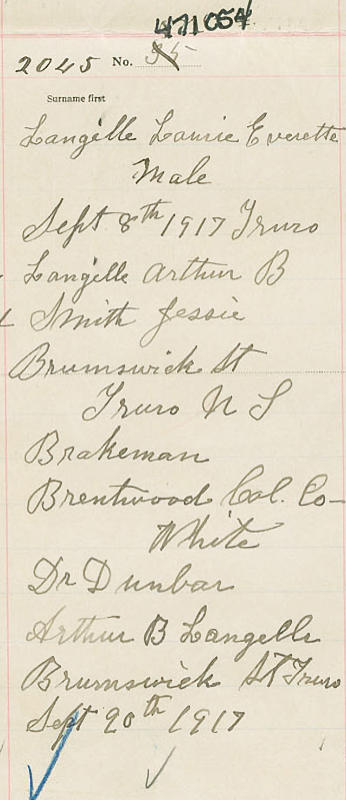 471054
2045 No. 35
Surname first
Langille Laurie Everette
Male
Sept 8th 1917 Truro
Langille Arthur B
Smith Jessie
Brumswick St
Truro N S
Brakeman
Brentwood Col. Co-
White
Dr Dunbar
Arthur B Langille
Brumswick St Truro
Sept 20th 1917